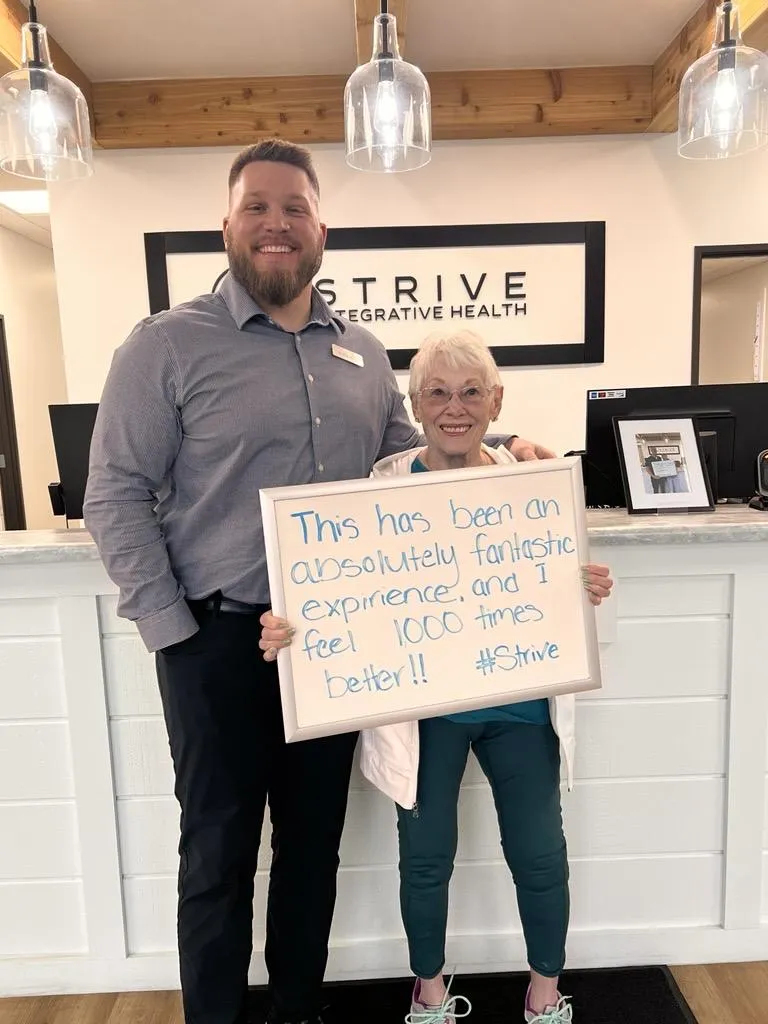 STRIVE
TEGRATIVE HEALTH
This has been an
absolutely fantastic
expirience. and I
feel 1000 times
better!! #Strive